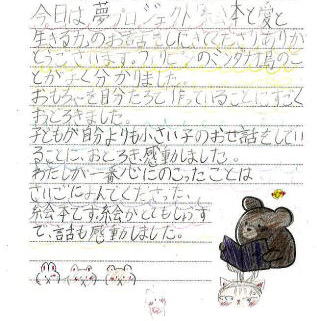 今日は、夢プロジェクト「絵本と愛と
生きる力」のお話をしにきてくださりありが
とうございます。フィリピンのミンダナオ島のこ
とがよく分かりました。
おもちゃを自分たちで作っていることにすごく
おどろきました。
子どもが自分よりも小さい子のおせ話をしてい
ることに、おどろき、感動しました。
わたしが一番心にのこったことは
さいごによんでくださった、
絵本です。絵がとてもじょうず
で、話も感動しました。